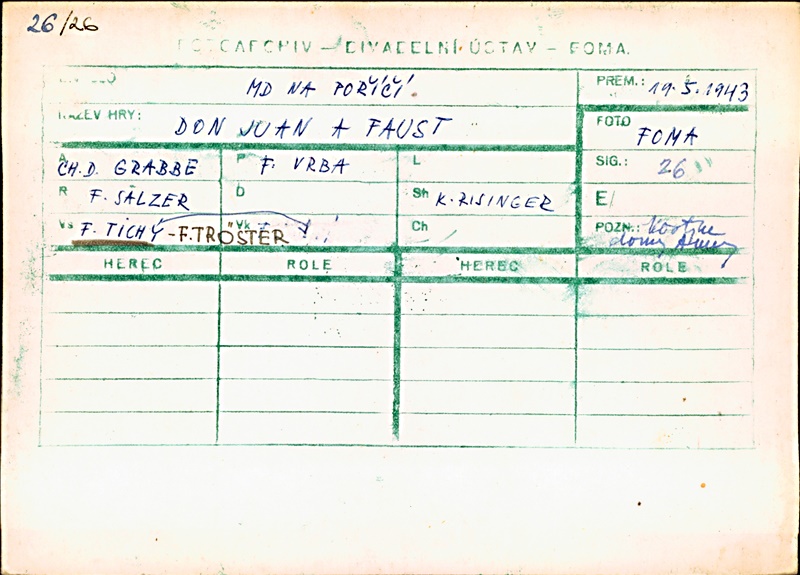 26/26
FOTOARCHIV – DIVADELNÍ ÚSTAV – FOMA.
MD NA POŘÍČÍ
PREM.: 19.5.1943
NÁZEV HRY: DON JUAN A FAUST
FOTO FOMA
A CH.D. GRABBE P F. VRBA L
SIG.: 26
R F. SALZER D Sh K. RISINGER
E
Vs F. TICHÝ - F. TRÖSTER Vk ! Ch
POZN.:
HEREC ROLE HEREC ROLE